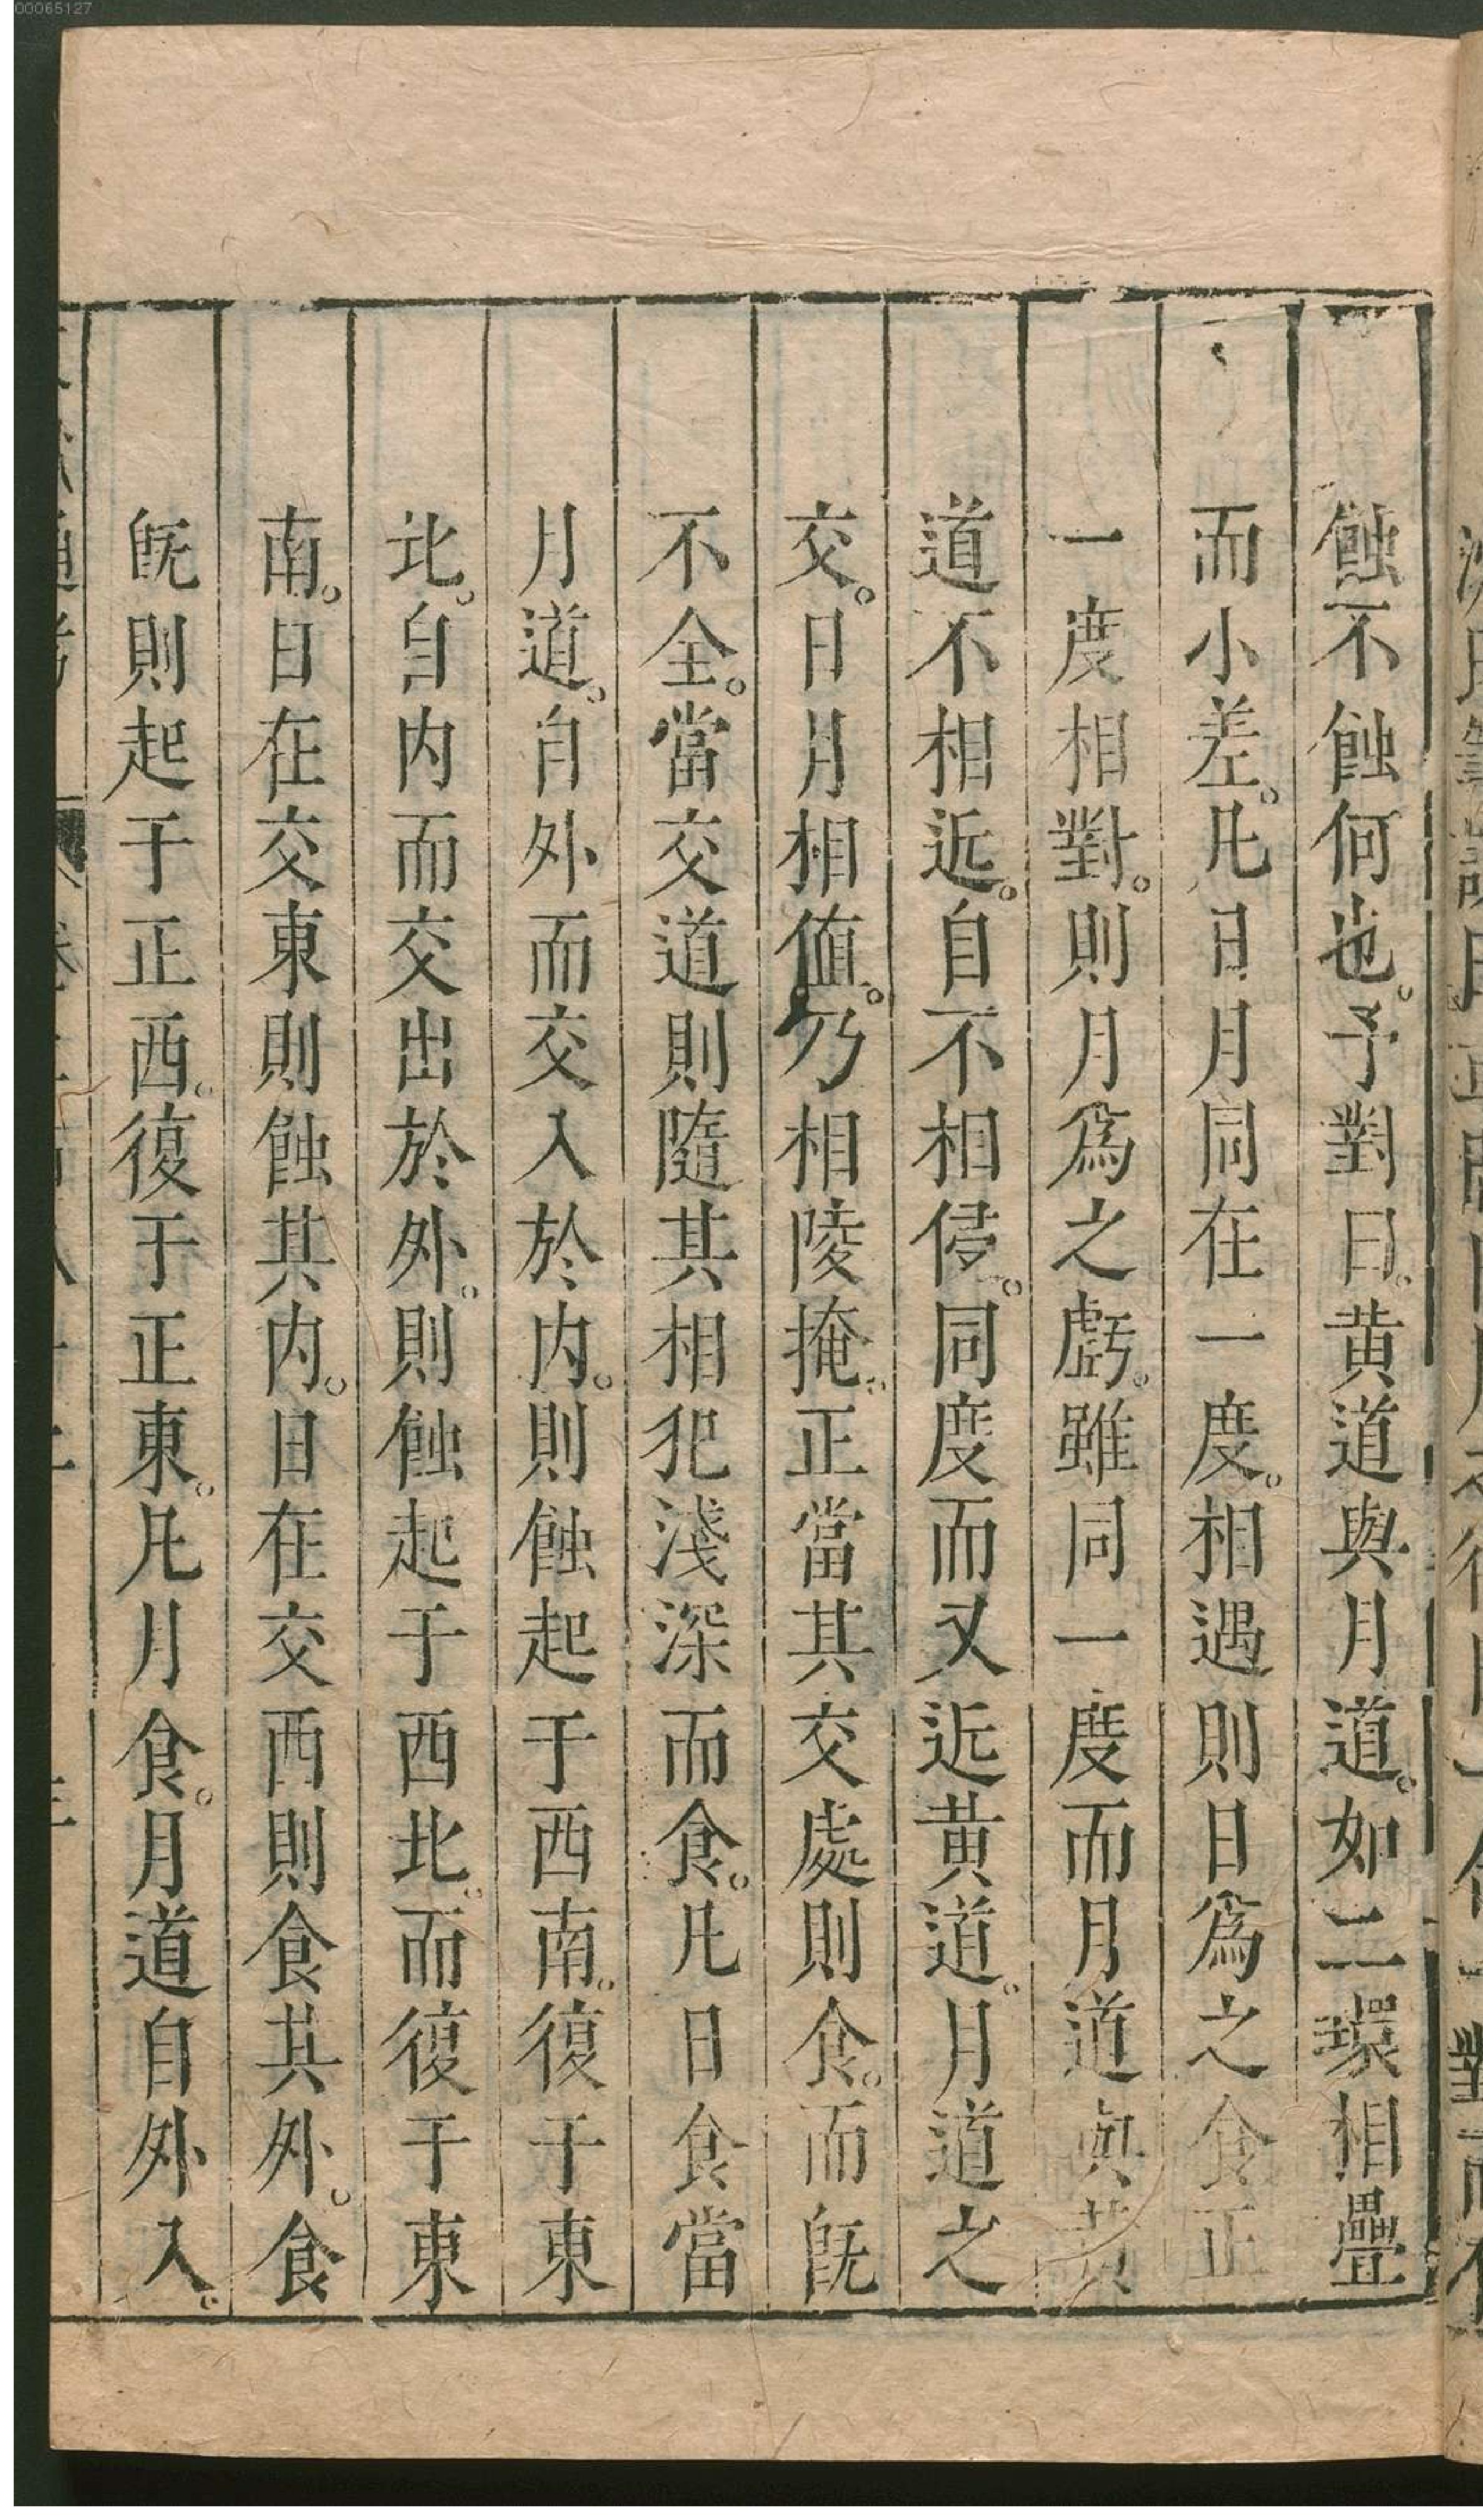 00065127
蝕不蝕何也。予對曰。黄道與月道。如二環相疊
而小差。凡日月同在一度。相遇則日爲之食正
一度相對。則月爲之虧。雖同一度而月道與黄
道不相近。自不相侵。同度而又近黄道。月道之
交。日月相値。乃相陵掩。正當其交處則食。而旣
不全。當交道則隨其相犯淺深而食。凡日食當
月道。自外而交入於内。則蝕起于西南。復于東
北。自内而交出於外。則蝕起于西北。而復于東
南。日在交東則蝕其内。日在交西則食其外。食
旣則起于正西。復于正東。凡月食。月道自外入。